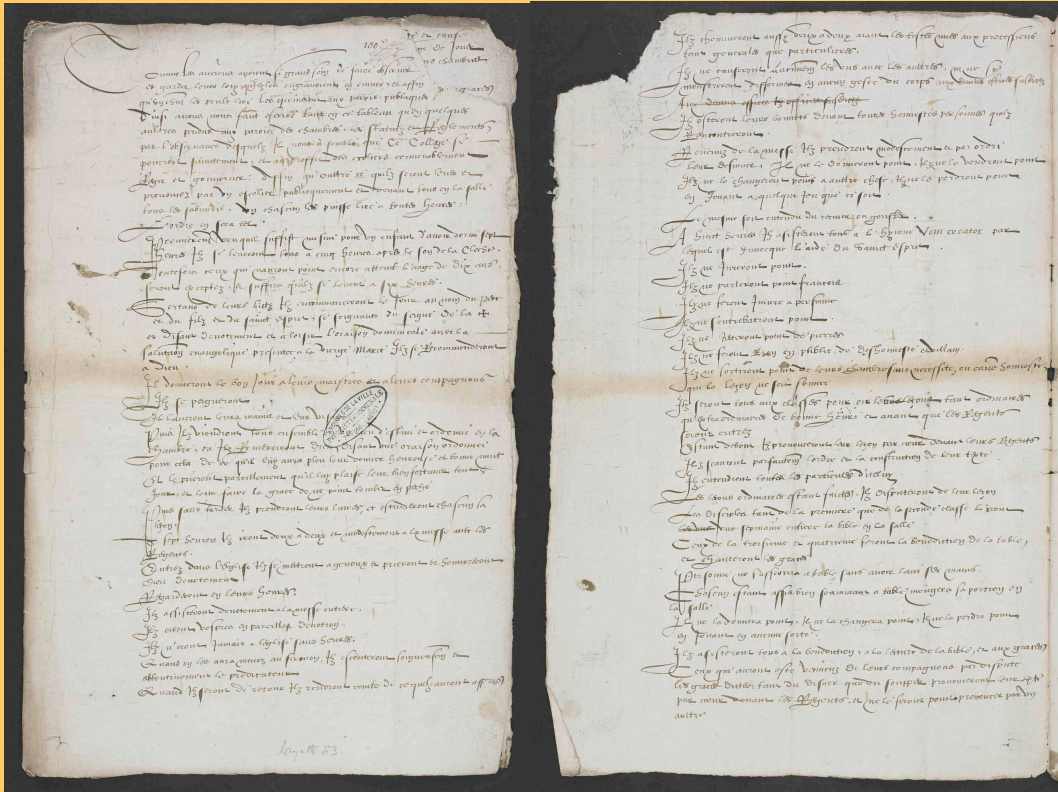 et cause
100
ge de Jour
chambres
Comme les anciens avoient si grand soin de faire observer
et garder leurs loix quilz les engravoient en cuivre et affin
quon les peult lire les escrivoient aux parois publiques
Ainsi avons nous faict escrire tout en ce tableau quen quelques
aultres pendus aux parois des chambres, les statutz et Reglements
par l'observance desquelz Il nous a semblé que Ce College se
pourroit sainctement, et au proffit des escoliers convenablement
Regir et gouverner. Affin qu'oultre ce quilz seront leus et
prononcez par un escolier publicquement et devant tous en la salle
tous les sabmedis, Un chascun les puisse lire a toutes heures.
L'ordre en sera tel
Premierement veu que suffist pour un enfant d'avoir dormi sept
heures Ilz se leveront tous a cinq heures apres le son de la Cloche.
Toutesfois ceux qui n'auront point encore attent l'aage de dix ans,
seront exceptez, et suffira quilz se levent a six heures.
Sortans de leurs lictz Ilz commenceront le Jour au nom du Pere
et du filz et du sainct esprit se seignants du seigne de la +
et disant devotement et a loisir l'oraison dominicale avec la
salutation evangelique presentee a la vierge Marie Ilz se Recommendront
a Dieu.
Ilz donneront le bon Jour a leurs maistres et a leurs compagnons
Ilz se peigneront
Ilz laveront leurs mains et leur
Puis Ilz viendront tous ensemble en la
chambre, ou Ilz Remerciront Dieu disant une oraison ordonnee
pour cela de ce qu'il luy aura pleu leur donner heureuse et bonne nuict
Et le prieront pareillement qu'il luy plaise leur tout le
Jour, et leur faire la grace de ne point tomber en peché
Puis sans tarder Ilz prendront leurs livres et estudieront chascun sa
leçon.
A sept heures Ilz iront deux a deux et modestement a la messe avec les
Regents.
Entrez dans l'Eglise Ilz se mettront a genoux et prieront et honnoreront
Dieu devotement
Regarderont en leurs heures.
Ilz assisteront devotement a la messe entiere.
Ilz oiront vespres en pareille devotion.
Ilz n'iront Jamais a l'eglise sans heures.
Quand on les aura menez au sermon, Ilz escouteront soigneusement et
attentivement le predicateur
Et quand Ilz seront de retour Ilz rendront comte de ce quilz auront apprins
Layette 83
Ilz chemineront aussy deux a deux aiant les testes nues aux processions
tant generales que particulieres.
Ilz ne causeront aucunement les uns avec les aultres,
monstreront en aucun geste du corps
Ilz osteront leurs bonnetz devant toutes honnestes personnes quilz
Rencontreront.
Revenus de la messe Ilz prendront modestement et par ordre
leur desjuner. Ilz ne le donneront point, Ilz ne le vendront point
Ilz ne le changeront point a aultre chose, Ilz ne le perdront point
en Jouant a quelque Jou que ce soit
Le mesme soit entendu du
A huict heures Ilz assisteront tous a l'hymne Veni creator par
lequel est invocque l'aide du Sainct esprit.
Ilz ne Jureront point.
Ilz ne parleront point françois
Ilz ne feront Injure a personne
Ilz ne sentrebatront point
Ilz ne Jetteront point de pierres
Ilz ne feront Rien en public de deshonneste
Ilz ne sortiront point de leurs chambres sans necessite, ou cause honneste
que la leçon ne soit sonnee
Ilz seront tous aux classes pour ouir leurs leçons tant ordinaires
qu'extraordinaires de bonne heure et avant que les Regents
seront entrez
Estant debout Ilz prononceront leur leçon par cœur devant leurs Regents
Ilz scauront parfaictement l'ordre et la construction de leur texte.
Ilz entendront toutes les particules d'icelluy
Les leçons ordinaires estant faictes, Ilz disputeront de leur leçon
Les disciples tant de la premiere que de la seconde classe liront
une sepmaine entiere la bible en la salle
Ceux de la troisieme et quatrieme feront la benediction de la table,
et chanteront les graces
Personne ne s'asseoira a table sans avoir lavé ses mains
Chascun estant assis bien seamment a table mangera sa portion en
la salle.
Il ne la donnera point, Il ne la changera point, Il ne la perdra point
en Jouant en aucune sorte.
Ilz assisteront tous a la benediction, a la lecture de la bible, et aux graces
Ceux qui auront esté vaincuz de leurs compagnons par dispute
les graces dictes tant du disner que du soupper prononceront leur texte
par cœur devant les Regents, et ne le feront point prononcer par un
aultre